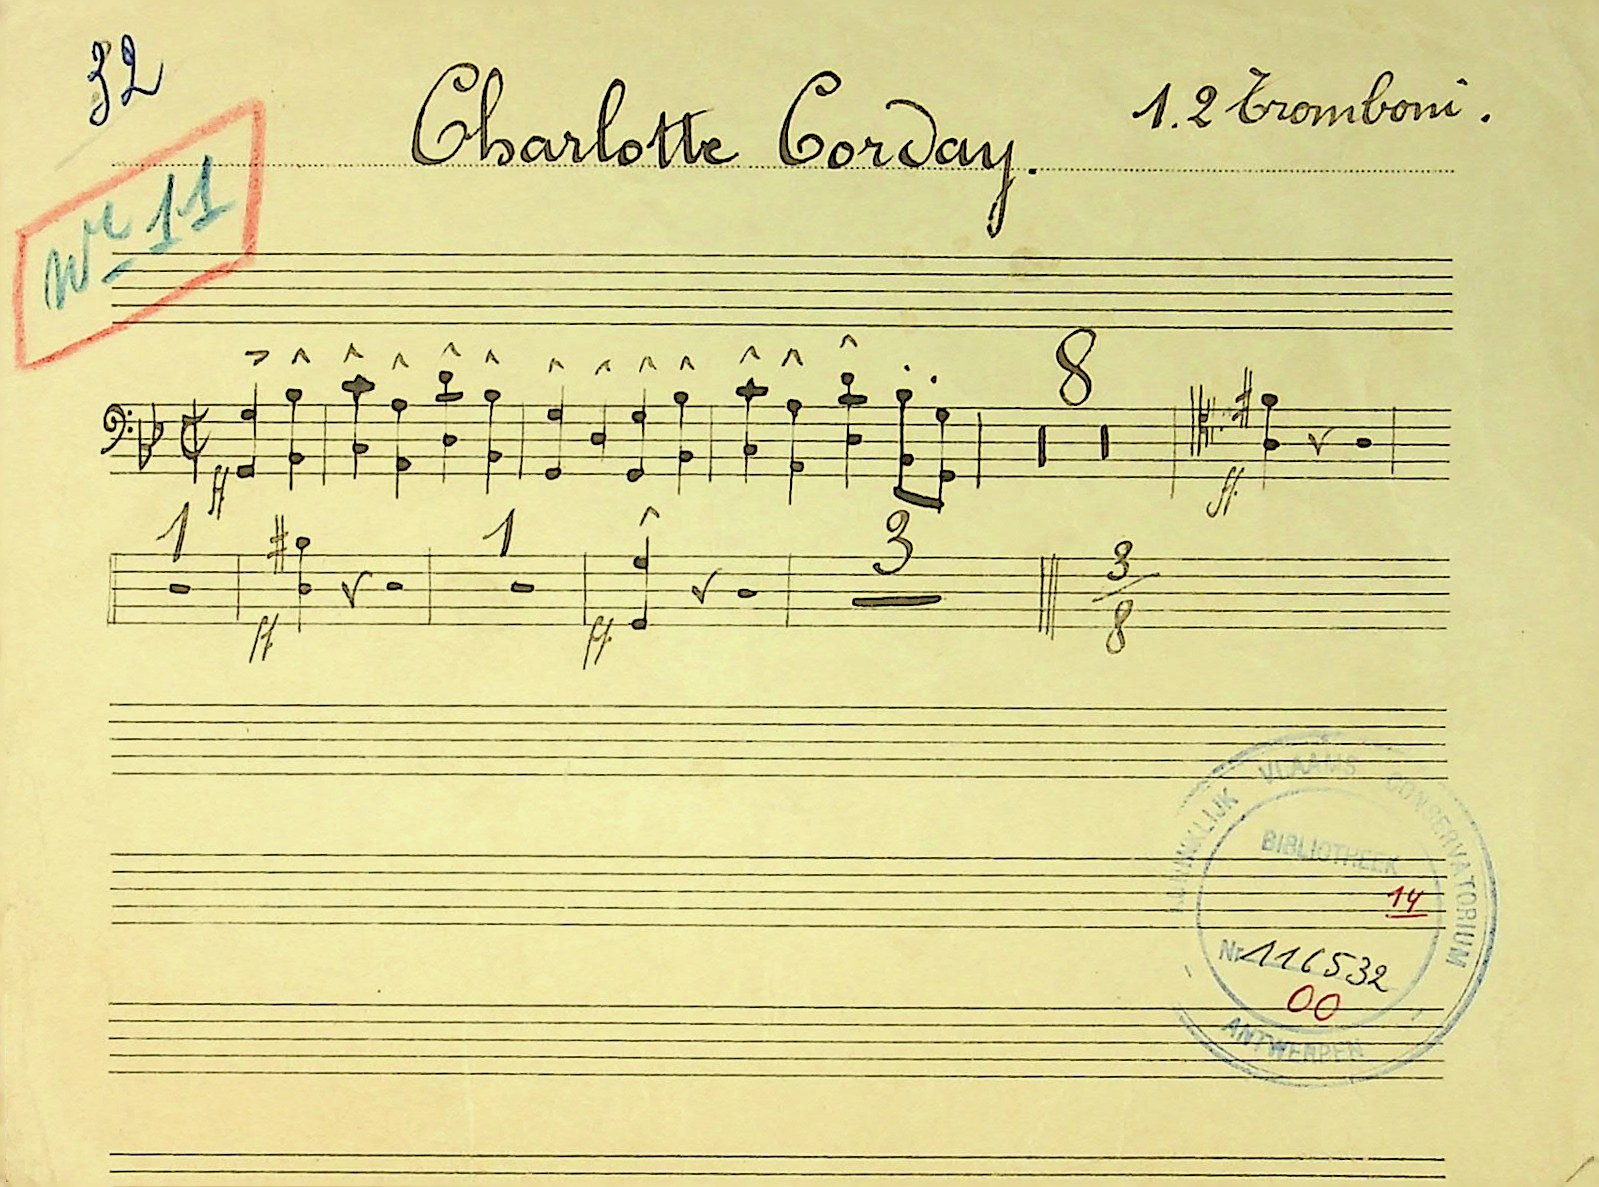 32
Charlotte Corday.
1.2 Tromboni.
Nr 11
ff
8
ff.
1
ff
1
ff.
3
3
8
KONINKLIJK VLAAMS CONSERVATORIUM
BIBLIOTHEEK
14
Nr 116532
00
ANTWERPEN